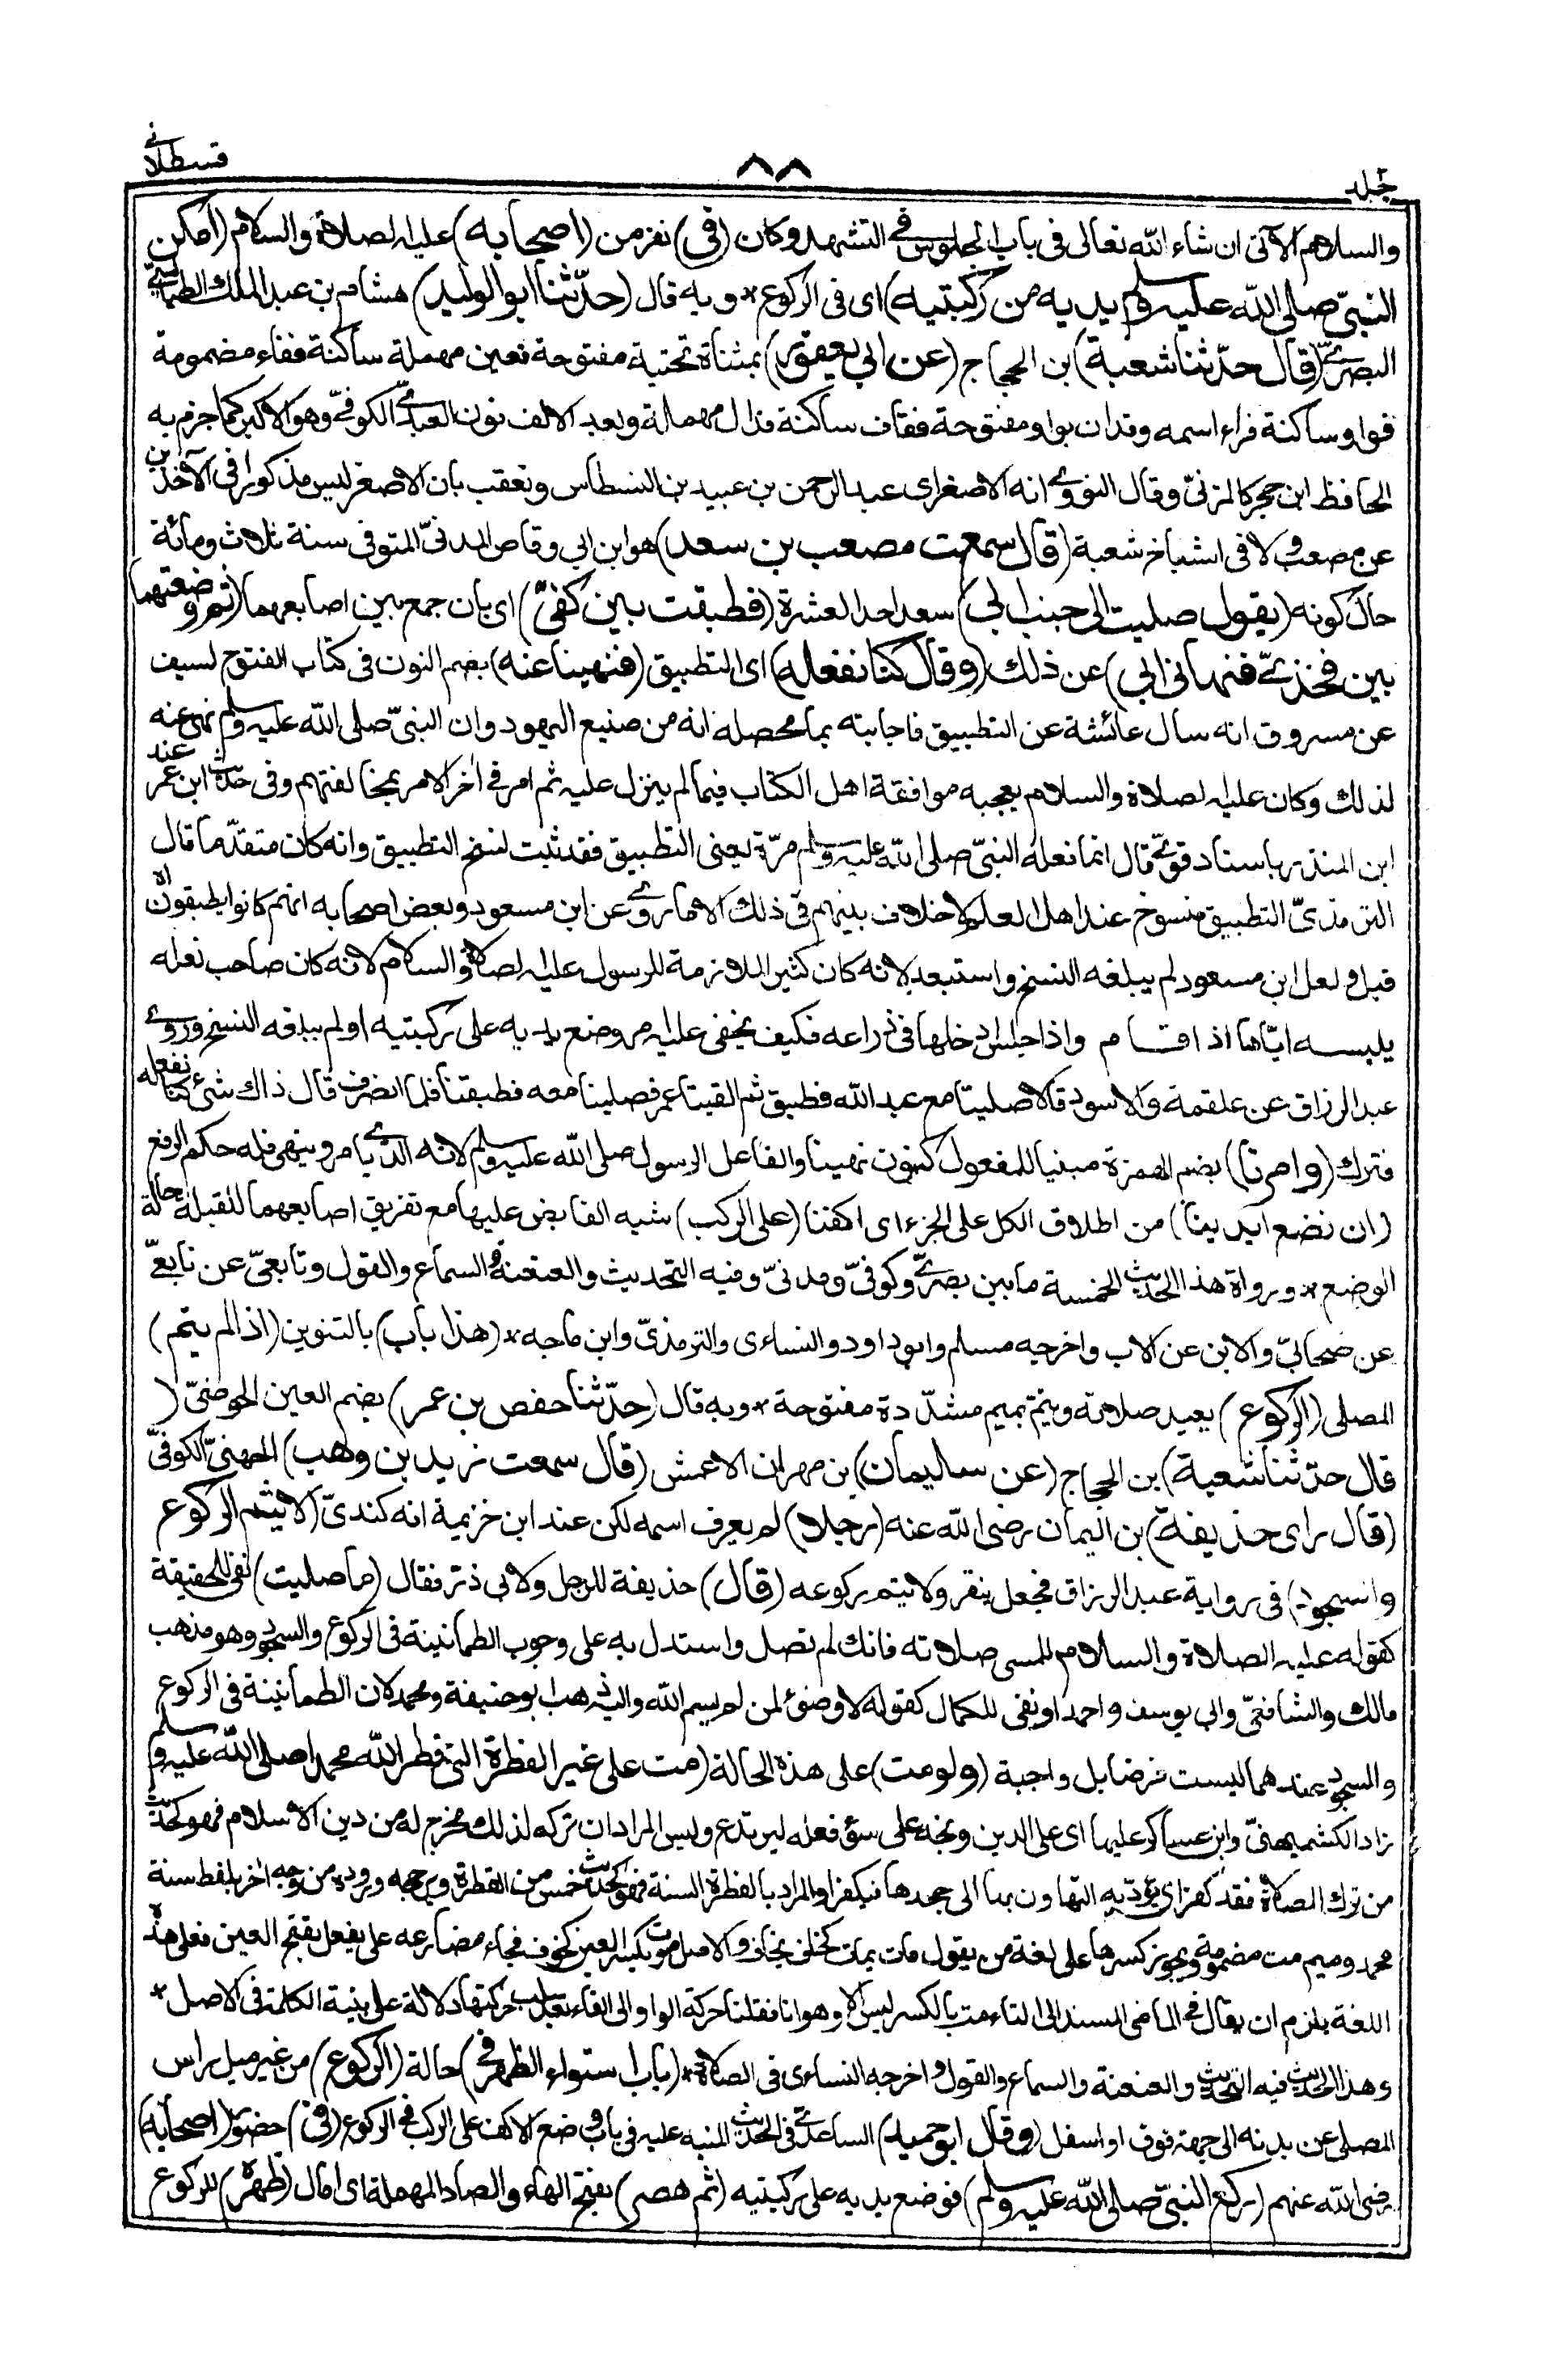 جلد
٨٨
قسطلانے
والسلام الآتى ان شاء الله تعالى فى باب الجلوس فے التشهد وكان (فى) نفر من (اصحابه) عليه الصلاة والسلام (امكن
النبىّ صلى الله عليه وسلم يديه من ركبتيه) اى فى الركوع * وبه قال (حدّثنا ابو الوليد) هشام بن عبد الملك الطيالسىّ
البصرىّ (قال حدّثنا شعبة) بن الحجاج (عن ابي يعفور) بمثناة تحتية مفتوحة فعين مهملة ساكنة ففاء مضمومة
فواو ساكنة فراء اسمه وقدان بواو مفتوحة فقاف ساكنة فدال مهملة وبعد الالف نون العبدىّ الكوفىّ وهو الاكبر كما جزم به
الحافظ ابن حجر كالمزنىّ وقال النووىّ انه الاصغر اى عبد الرحمن بن عبيد بن النسطاس وتعقب بان الاصغر ليس مذكورا فى الآخذين
عن مصعب ولا فى اشياخ شعبة (قال سمعت مصعب بن سعد) هو ابن ابي وقاص المدنىّ المتوفى سنة ثلاث ومائة
حال كونه (يقول صليت الى جنب ابي) سعد احد العشرة (فطبقت بين كفىّ) اى بان جمع بين اصابعهما (ثم وضعتهما
بين فخذىّ فنهانى ابي) عن ذلك (وقال كنا نفعله) اى التطبيق (فنهينا عنه) بضم النون فى كتاب الفتوح لسيف
عن مسروق انه سال عائشة عن التطبيق فاجابته بما محصله انه من صنيع اليهود وان النبىّ صلى الله عليه وسلم نهى عنه
لذلك وكان عليه الصلاة والسلام يعجبه موافقة اهل الكتاب فيما لم ينزل عليه ثم امر فى اخر الامر بمخالفتهم وفى حديث ابن عمر عند
ابن المنذر باسناد قوىّ قال انما فعله النبىّ صلى الله عليه وسلم مرّة يعنى التطبيق فقد ثبت نسخ التطبيق وانه كان متقدّما قال
الترمذىّ التطبيق منسوخ عند اهل العلم لا خلاف بينهم فى ذلك الا ما روى عن ابن مسعود وبعض اصحابه انهم كانوا يطبقون اه
قيل ولعل ابن مسعود لم يبلغه النسخ واستبعد لانه كان كثير الملازمة للرسول عليه الصلاة والسلام لانه كان صاحب نعله
يلبسه ايّاها اذا قام واذا جلس ادخلها فى ذراعه فكيف يخفى عليه امر وضع يديه على ركبتيه اولم يبلغه النسخ وروى
عبد الرزاق عن علقمة والاسود قالا صلينا مع عبد الله فطبق ثم القينا عمر فصلينا معه فطبقنا فلما انصرف قال ذاك شئ كنا نفعله
فترك (وامرنا) بضم الهمزة مبنيا للمفعول كنون نهينا والفاعل الرسول صلى الله عليه وسلم لانه الذى يامر وينهى فله حكم الرفع
(ان نضع ايدينا) من اطلاق الكل على الجزء اى اكفنا (على الركب) شبه القابض عليها مع تفريق اصابعهما للقبلة حالة
الوضع * ورواة هذا الحديث الخمسة ما بين بصرىّ وكوفىّ ومدنىّ وفيه التحديث والعنعنة والسماع والقول وتابعىّ عن تابعىّ
عن صحابىّ والابن عن الاب واخرجه مسلم وابو داود والنساءى والترمذىّ وابن ماجه * (هذا باب) بالتنوين (اذا لم يتم)
المصلى (الركوع) يعيد صلاته ويتم بميم مشدّدة مفتوحة * وبه قال (حدّثنا حفص بن عمر) بضم العين الحوضىّ (
قال حدّثنا شعبة) بن الحجاج (عن سليمان) بن مهران الاعمش (قال سمعت زيد بن وهب) الجهنىّ الكوفىّ
(قال راى حذيفة) بن اليمان رضى الله عنه (رجلا) لم يعرف اسمه لكن عند ابن خزيمة انه كندىّ (لا يتم الركوع
والسجود) فى رواية عبد الرزاق فجعل ينقر ولا يتم ركوعه (قال) حذيفة للرجل ولابى ذر فقال (ما صليت) نفى للحقيقة
كقوله عليه الصلاة والسلام للمسى صلاته فانك لم تصل واستدل به على وجوب الطمانينة فى الركوع والسجود وهو مذهب
مالك والشافعىّ وابي يوسف واحمد او نفى للكمال كقوله لا وضوئ لمن لم يسم الله واليه ذهب ابو حنيفة ومحمد لان الطمانينة فى الركوع
والسجود عندهما ليست فرضا بل واجبة (ولو مت) على هذه الحالة (مت على غير الفطرة التى فطر الله محمدا صلى الله عليه وسلم
زاد الكشميهنىّ وابن عساكر عليها اى على الدين وبخه على سوء فعله ليرتدع وليس المراد ان تركه لذلك مخرج له من دين الاسلام فهو كحديث
من ترك الصلاة فقد كفر اى يؤدّيه التهاون بها الى جحدها فيكفر او المراد بالفطرة السنة فهو كحديث خمس من الفطرة ويرجحه وروده من وجه اخر بلفظ سنة
محمد وميم مت مضمومة ويجوز كسرها على لغة من يقول مات يمات كخاف يخاف والاصل موت بكسر العين كخوف فجاء مضارعه على يفعل بفتح العين فعلى هذه
اللغة يلزم ان يقال فى الماضى المسند الى التاء مت بالكسر ليس الا وهو انا نقلنا حركة الواو الى الفاء بعد سلب حركتها دلالة على بنية الكلمة فى الاصل *
وهذا الحديث فيه التحديث والعنعنة والسماع والقول واخرجه النساءى فى الصلاة * (باب استواء الظهر فى) حالة (الركوع) من غير ميل راس
المصلى عن بدنه الى جهة فوق او اسفل (وقال ابو حميد) الساعدىّ فى الحديث المنبه عليه فى باب وضع الاكف على الركب فى الركوع (فى) حضور (اصحابه)
رضى الله عنهم (ركع النبىّ صلى الله عليه وسلم) فوضع يديه على ركبتيه (ثم هصر) بفتح الهاء والصاد المهملة اى امال (ظهره) للركوع